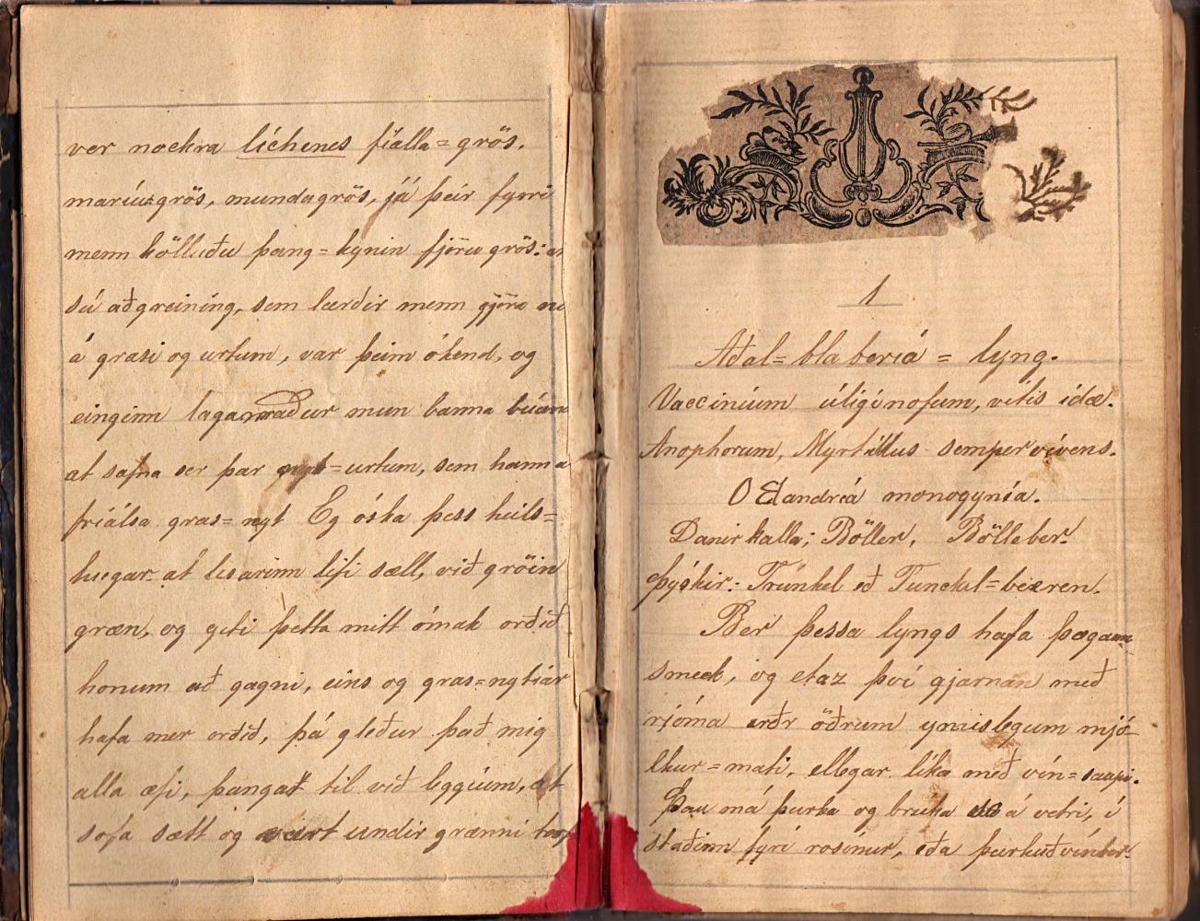 ver nockra líchenes fíalla=grös,
maríugrös, mundagrös, já þeír fyrri
menn kölluðu þang=kynin fjöru grös:
sú aðgreiníng, sem lærðir menn gjöra
á grasi og urtum, var þeim ókend, og
einginn lagamaður mun banna
at safna ser þar =urtum, sem hann á
fríálsa gras=nyt Eg óska þess heils=
hugar at lesarinn lifi sæll, við gröin
græn, og geti þetta mitt ómak orðið
honum að gagni, eins og gras=nytiar
hafa mer orðið, þá gleður það míg
alla æfi, þangat til við leggium, at
sofa sætt og vært undir grænni
1
Aðal=blaberiá=lyng.
Vacciníum úligínosum, vitis idæ.
Anophorum, Myrtillus sempervívens.
Octandriá monogynía.
Danir kalla; Böller, Bölleber.
Þýskir: Trunkel eð Tunckel=beeren.
Ber þessa lyngs hafa þægann
smeck, og etaz því gjarnan með
rjóma eðr öðrum ymislegum mjó-
lkur=mati, ellegar líka með vín=saupi.
Þau má þurka og brúka á vetri, í
staðinn fyri rosinur, eða þurkuð vínber.